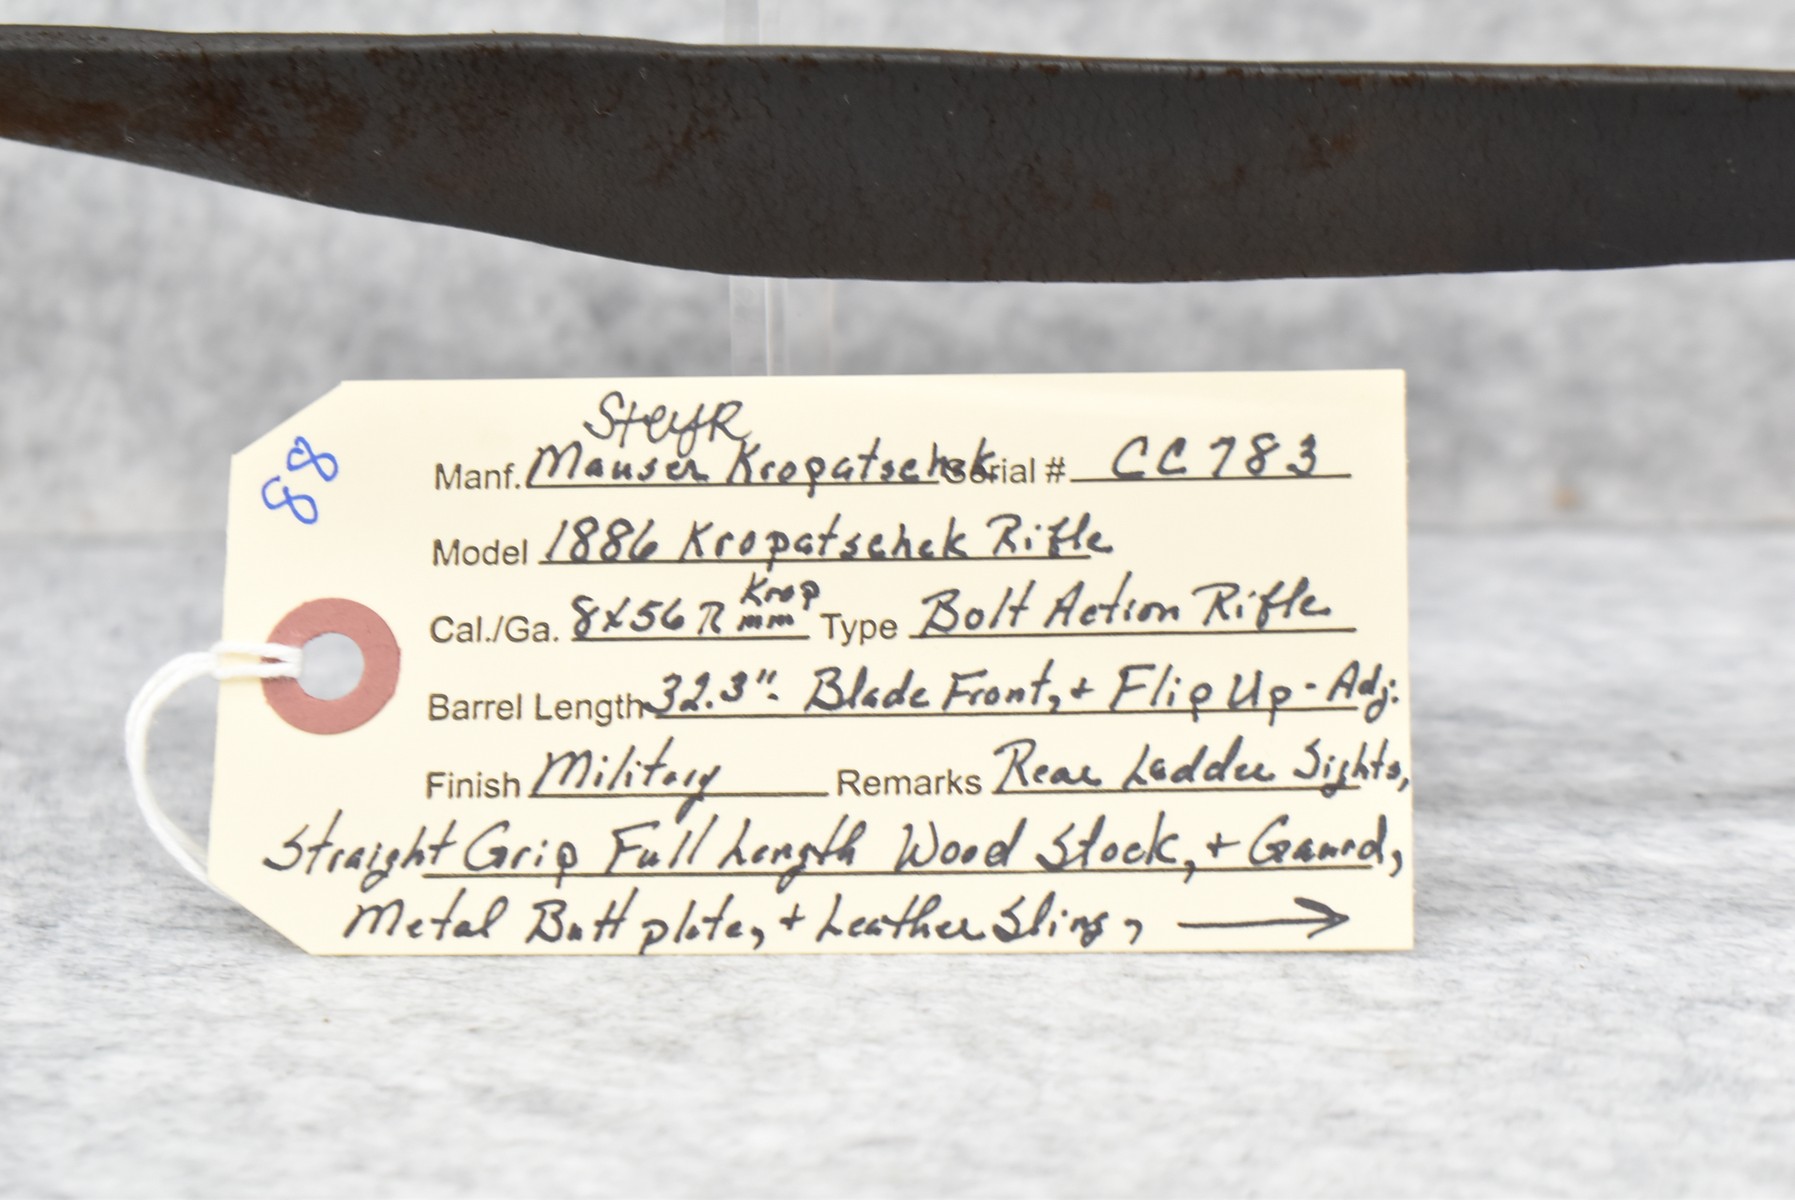 88
SteyR
Manf. Mauser Kropatschek Serial # CC 783
Model 1886 Kropatschek Rifle
Cal./Ga. 8x56 R Krop mm Type Bolt Action Rifle
Barrel Length 32.3". Blade Front, + Flip Up - Adj.
Finish Military Remarks Rear Ladder Sights,
Straight Grip Full Length Wood Stock, + Gaurd,
Metal Butt plate, + Leather Sling, →